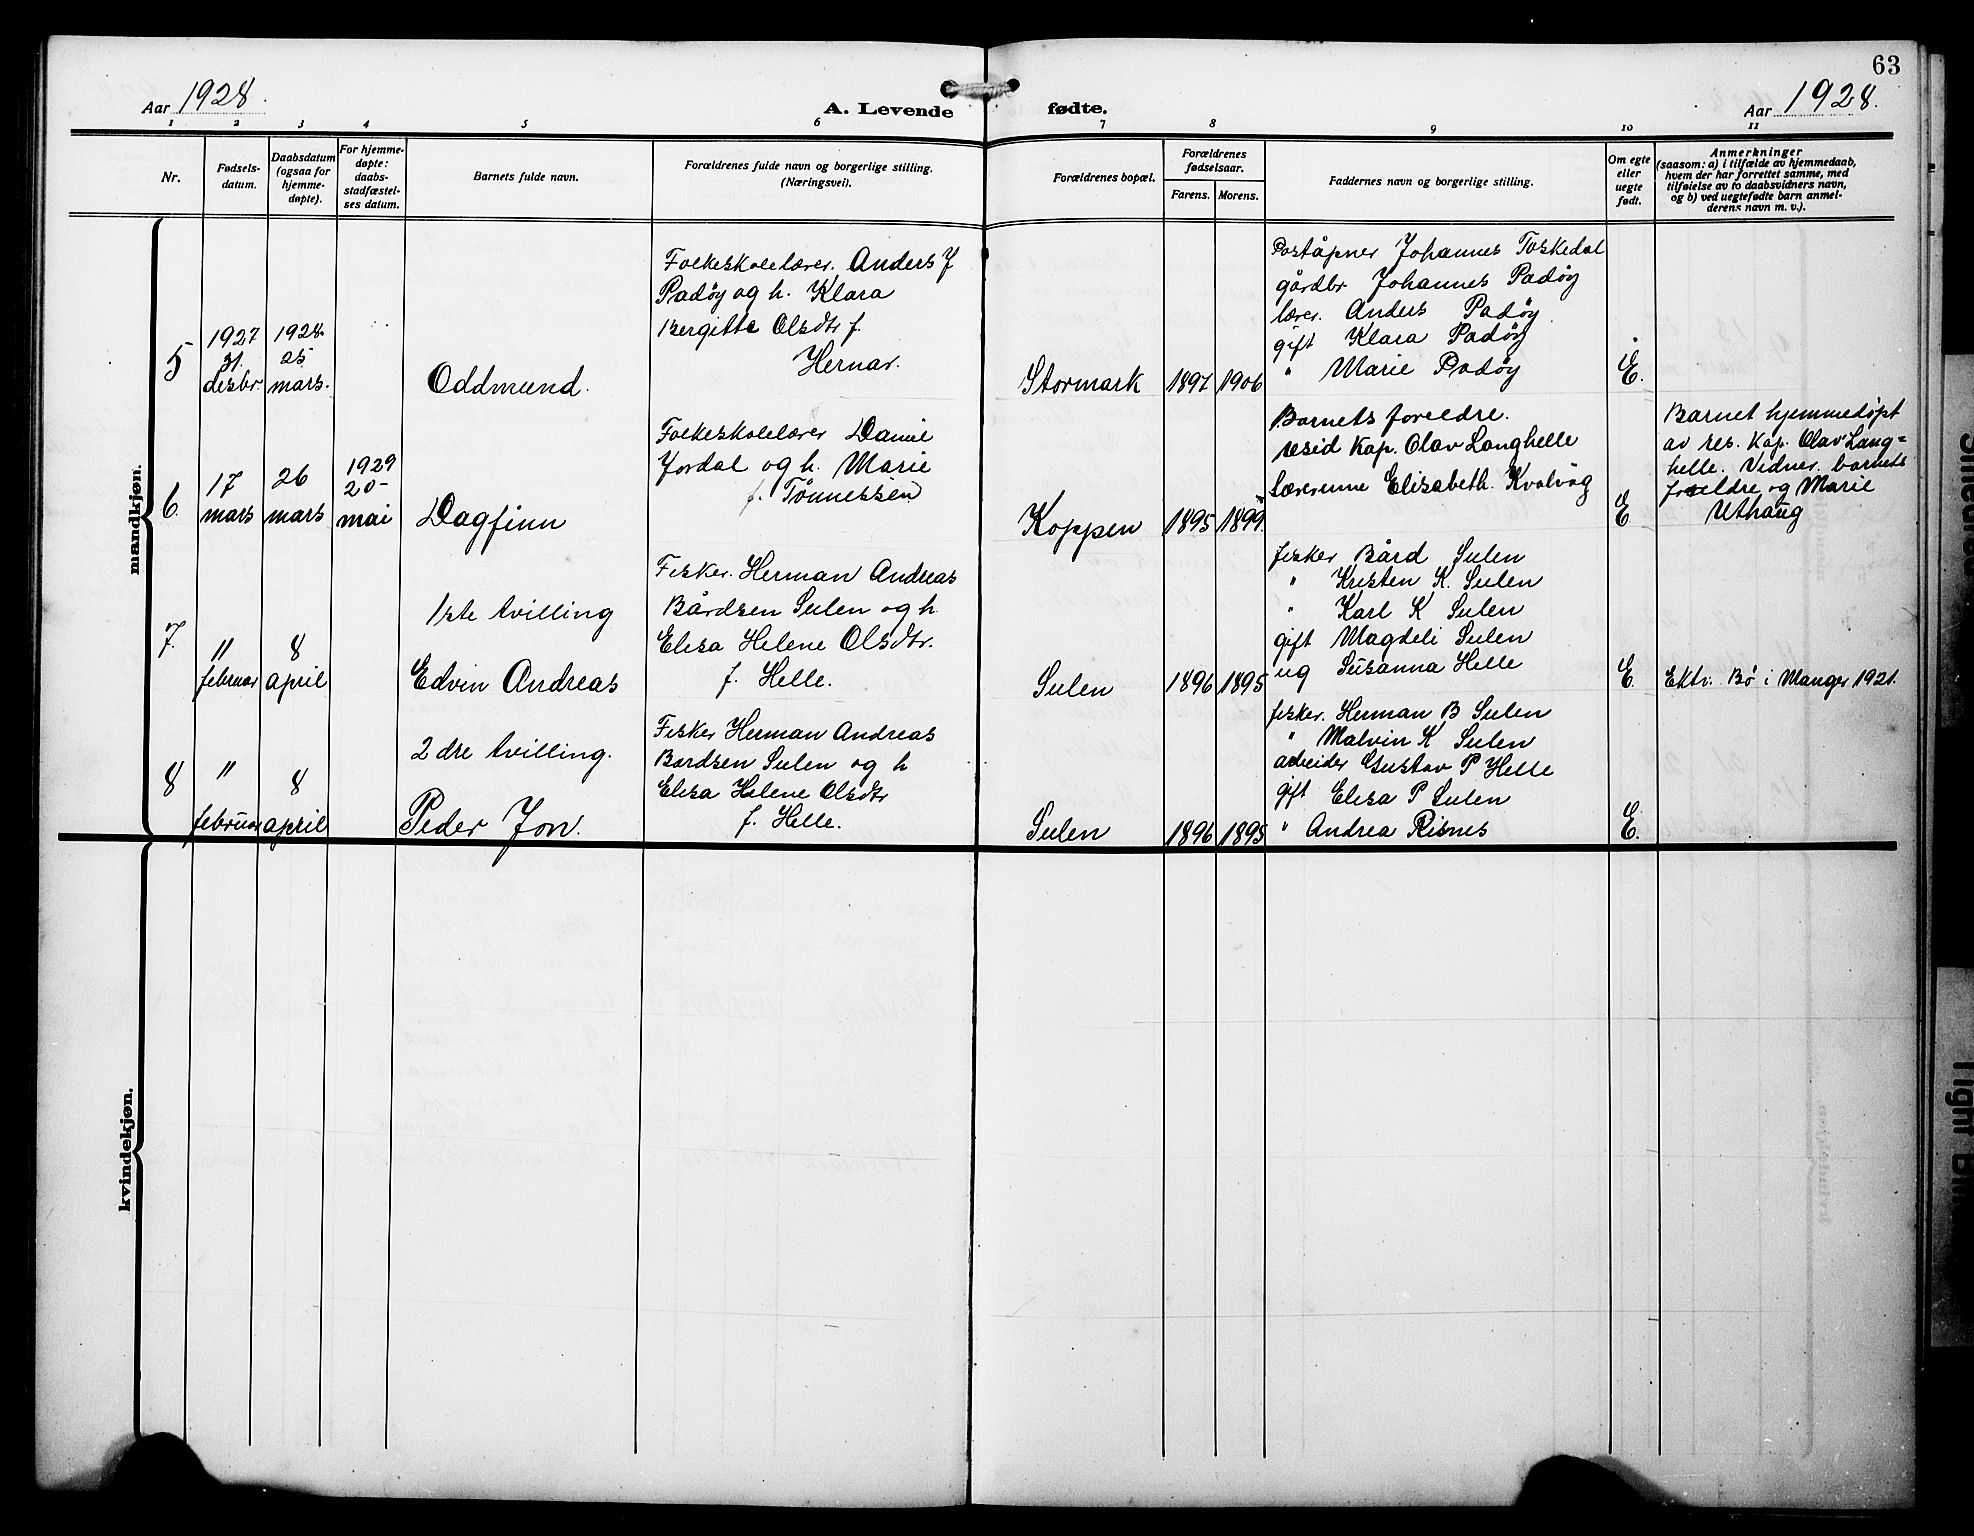 63
Aar 1928.
A. Levende fødte.
Aar 1928.
1 2 3 4 5 6 7 8 9 10 11
Nr.
Fødsels-
datum.
Daabsdatum
(ogsaa for
hjemme-
døpte).
For hjemme-
døpte:
daabs-
stadfæstel-
ses datum.
Barnets fulde navn.
Forældrenes fulde navn og borgerlige stilling.
(Næringsvei).
Forældrenes bopæl.
Forældrenes
fødselsaar.
Farens. Morens.
Faddernes navn og borgerlige stilling.
Om egte
eller
uegte
født.
Anmerkninger
(saasom: a) i tilfælde av hjemmedaab,
hvem der har forrettet samme, med
tilføielse av to daabsvidners navn,
og b) ved uegtefødte barn anmel-
derens navn m. v.).
mandkjøn.
5
1927
31.
desbr.
1928
25
mars.
Oddmund.
Folkeskolelærer. Anders J
Padøy og h. Klara
Bergitte Olsdtr f.
Hernar.
Stormark
1897 1906
Poståpner Johannes Toskedal
gårdbr Johannes Padøy
lærer. Anders Padøy
gift Klara Padøy
" Marie Padøy
E.
6.
17
mars
26
mars
1929
20-
mai
Dagfinn
Folkeskolelærer Daniel
Jordal og h. Marie
f. Tønnessen
Koppen
1895 1899.
Barnets foreldre.
resid Kap. Olav Langhelle
lærerinne Elisabeth. Kvalvåg
E
Barnet hjemmedøpt
av res. Kap. Olav Lang=
helle. Vidner. barnets
foreldre og Marie
Uthaug
7.
11
februar
8
april
1ste tvilling
Edvin Andreas
Fisker. Herman Andreas
Bårdsen Sulen og h
Elisa Helene Olsdtr.
f. Helle.
Sulen
1896 1895
fisker Bård Sulen
" Kristen K. Sulen
" Karl K Sulen
gift Magdeli Sulen
ug Susanna Helle
E.
Ektv. Bø i Manger 1921.
8
11
februar
8
april
2dre tvilling.
Peder Jon.
Fisker Herman Andreas
Bardsen Sulen og h
Elisa Helene Olsdtr
f. Helle.
Sulen
1896 1895
fisker. Herman B Sulen
" Malvin K Sulen
arbeider Gustav P Helle
gift Elisa P Sulen
" Andrea Risnes
E.
kvindekjøn.